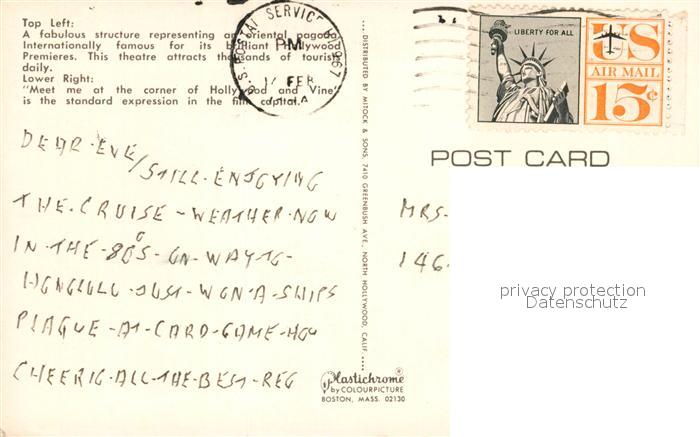 Top Left:
A fabulous structure representing an oriental pagoda.
Internationally famous for its brilliant Hollywood
Premieres. This theatre attracts thousands of tourists
daily.
Lower Right:
"Meet me at the corner of Hollywood and Vine"
is the standard expression in the film capital.
U.S. POSTAL SERVICE 96967
PM
FEB
LIBERTY FOR ALL
US
AIR MAIL
15¢
POST CARD
DEAR-EVE/
STILL-ENJOYING
THE-CRUISE-WEATHER-NOW
IN-THE-80°S-ON-WAY-TO-
HONOLULU-JUST-WON-A-SHIPS
PLAGUE-AT-CARD-GAME-HOW
CHEERIO-ALL-THE-BEST-REG
MRS-
146
DISTRIBUTED BY MITOCK & SONS, 7410 GREENBUSH AVE., NORTH HOLLYWOOD, CALIF.
Plastichrome®
by COLOURPICTURE
BOSTON, MASS. 02130
privacy protection
Datenschutz